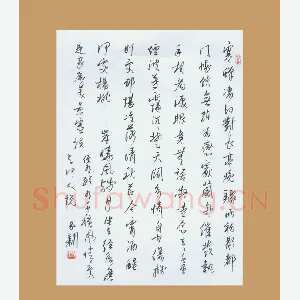 寒蝉凄切对长亭晚骤雨初歇都
门帐饮无绪留恋处兰舟催发执
手相看泪眼竟无语凝噎念去去千里
烟波暮霭沉沉楚天阔多情自古伤离
别更那堪冷落清秋节今宵酒醒
何处杨柳
岸晓风残月此去经年应
是良辰好景虚设
便纵有千种风情更
与何人说
Shufawang.cn